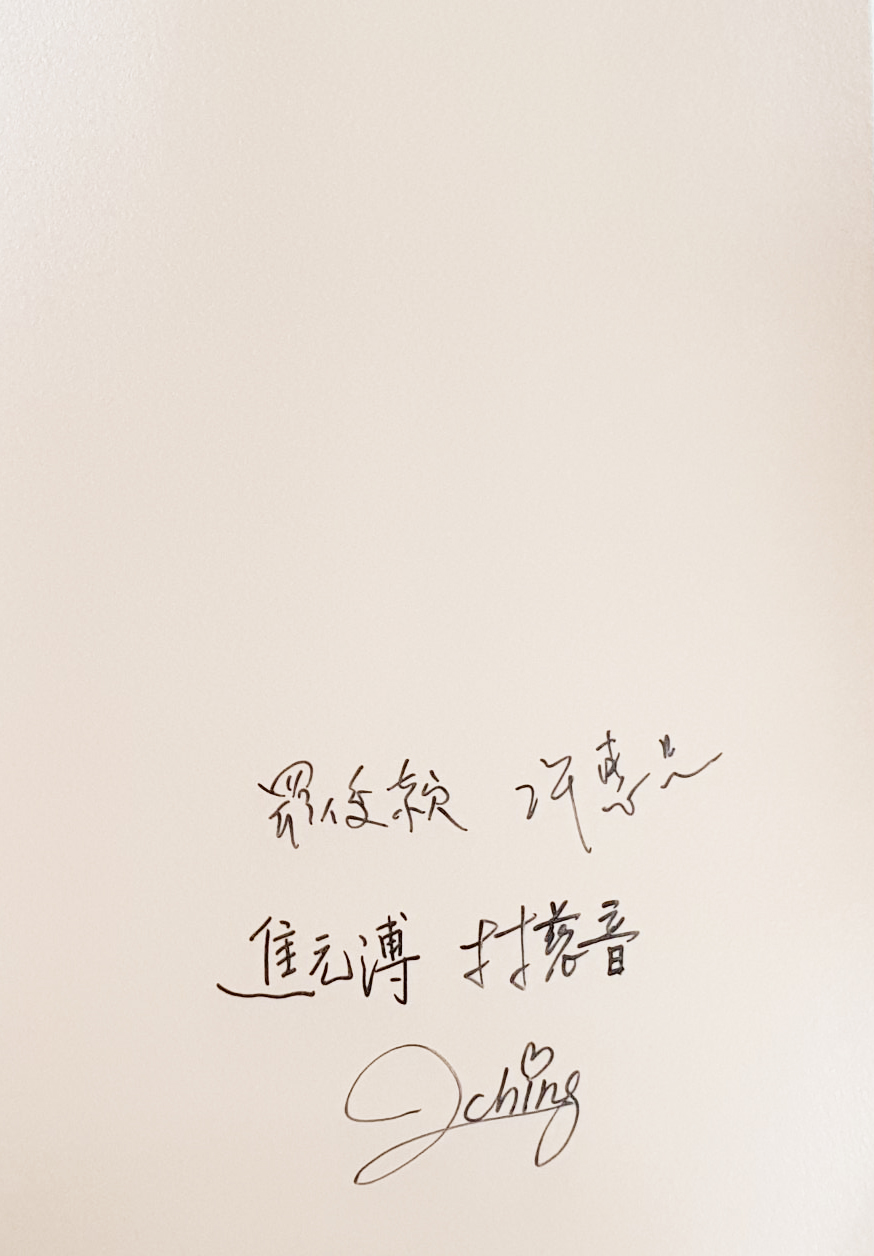 羅俊穎 許惠品
焦元溥 林慈音
Jching